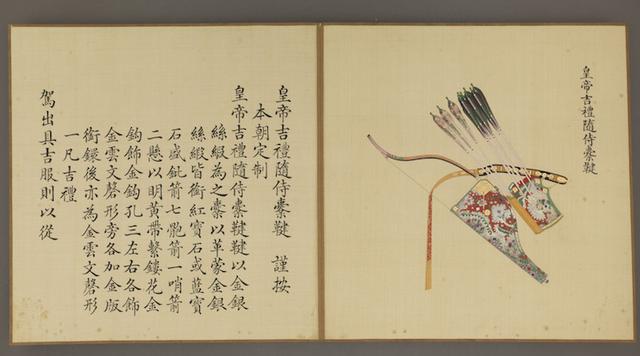 皇帝吉禮隨侍櫜鞬
皇帝吉禮隨侍櫜鞬 謹按
本朝定制
皇帝吉禮隨侍櫜鞬鞬以金銀
絲緞為之櫜以革蒙金銀
絲緞皆銜紅寶石或藍寶
石盛鈚箭七骲箭一哨箭
二懸以明黃帶繫鏤花金
鉤飾金鉤孔三左右各飾
金雲文磬形旁各加金版
銜鐶後亦為金雲文磬形
一凡吉禮
駕出具吉服則以從